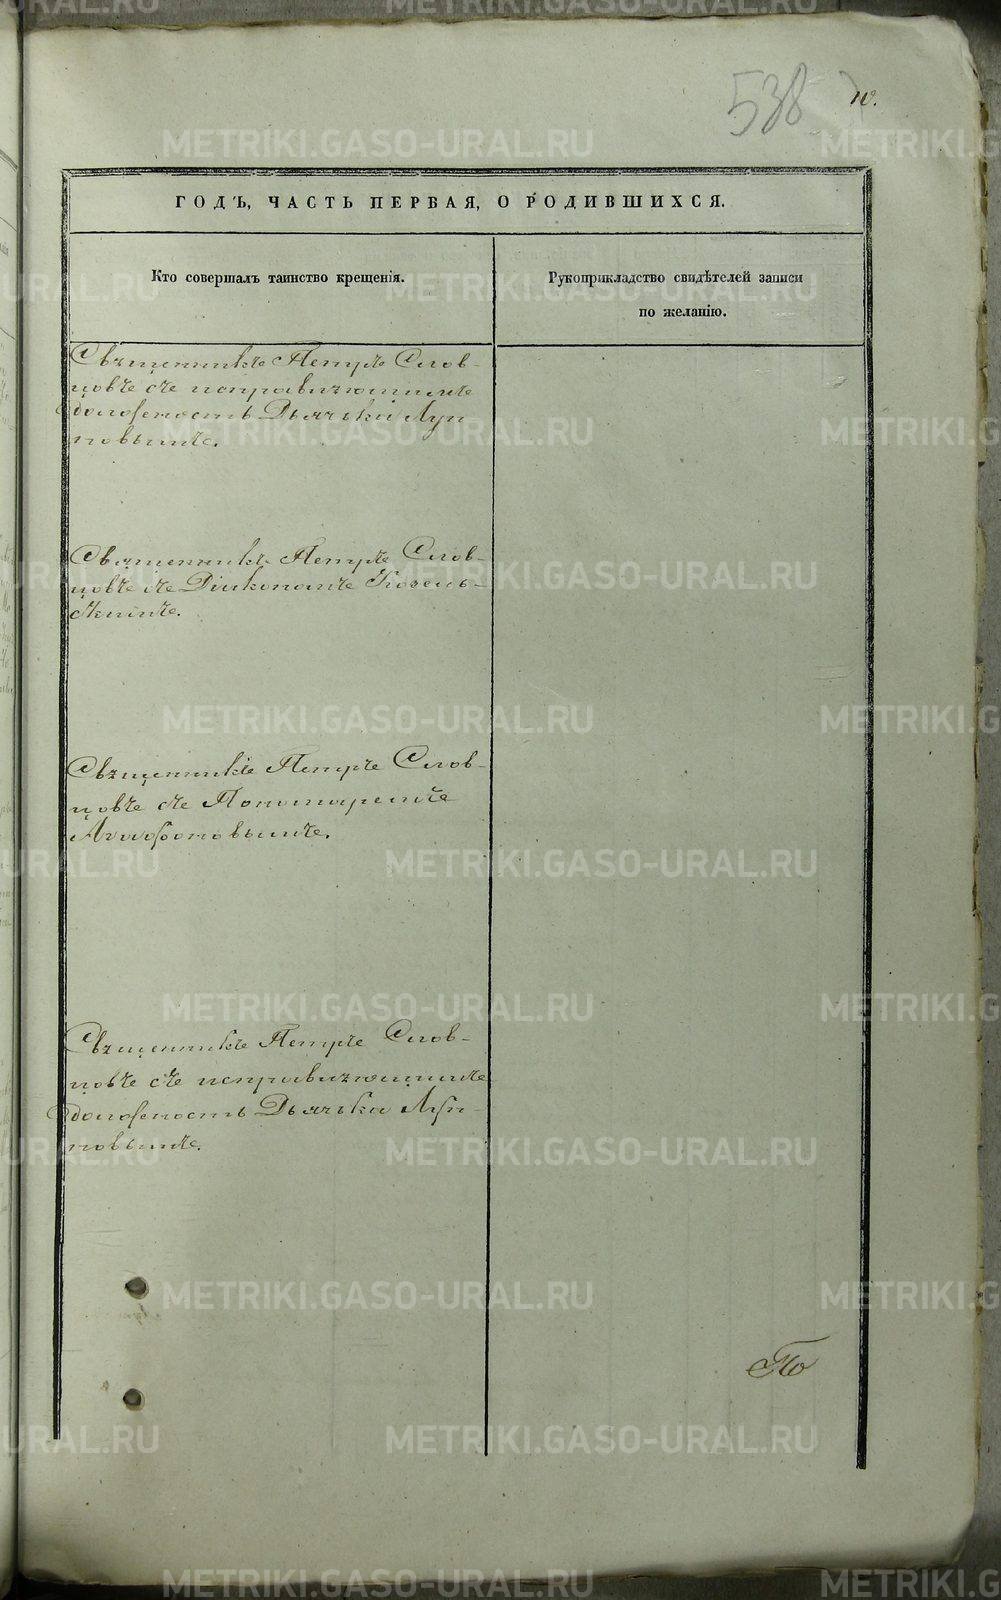 538
10.
ГОДЪ, ЧАСТЬ ПЕРВАЯ, О РОДИВШИХСЯ.
Кто совершалъ таинство крещенія.
Рукоприкладство свидѣтелей записи
по желанію.
Священникъ Петръ Слов-
цовъ съ исправляющимъ
должность Дьячка Луп-
повымъ.
Священникъ Петръ Слов-
цовъ съ Діакономъ Козель-
скимъ.
Священникъ Петръ Слов-
цовъ съ Пономаремъ
Агафоновымъ.
Священникъ Петръ Слов-
цовъ съ исправляющимъ
должность Дьячка Луп-
повымъ.
По
METRIKI.GASO-URAL.RU